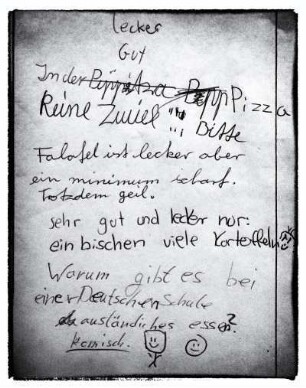 lecker
Gut
In der Pizza
Keine Zwiel ,,, Bitte
Falafel ist lecker aber
ein minimum scharf.
Trotzdem geil.
sehr gut und lecker nur:
ein bischen viele Kartoffeln
Warum gibt es bei
einer Deutschen Schule
ausländiches essen?
Komisch.